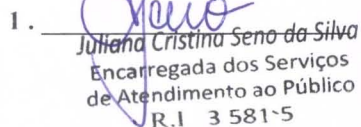 1.
Juliana Cristina Seno da Silva
Encarregada dos Serviços
de Atendimento ao Público
R.I 3 581-5